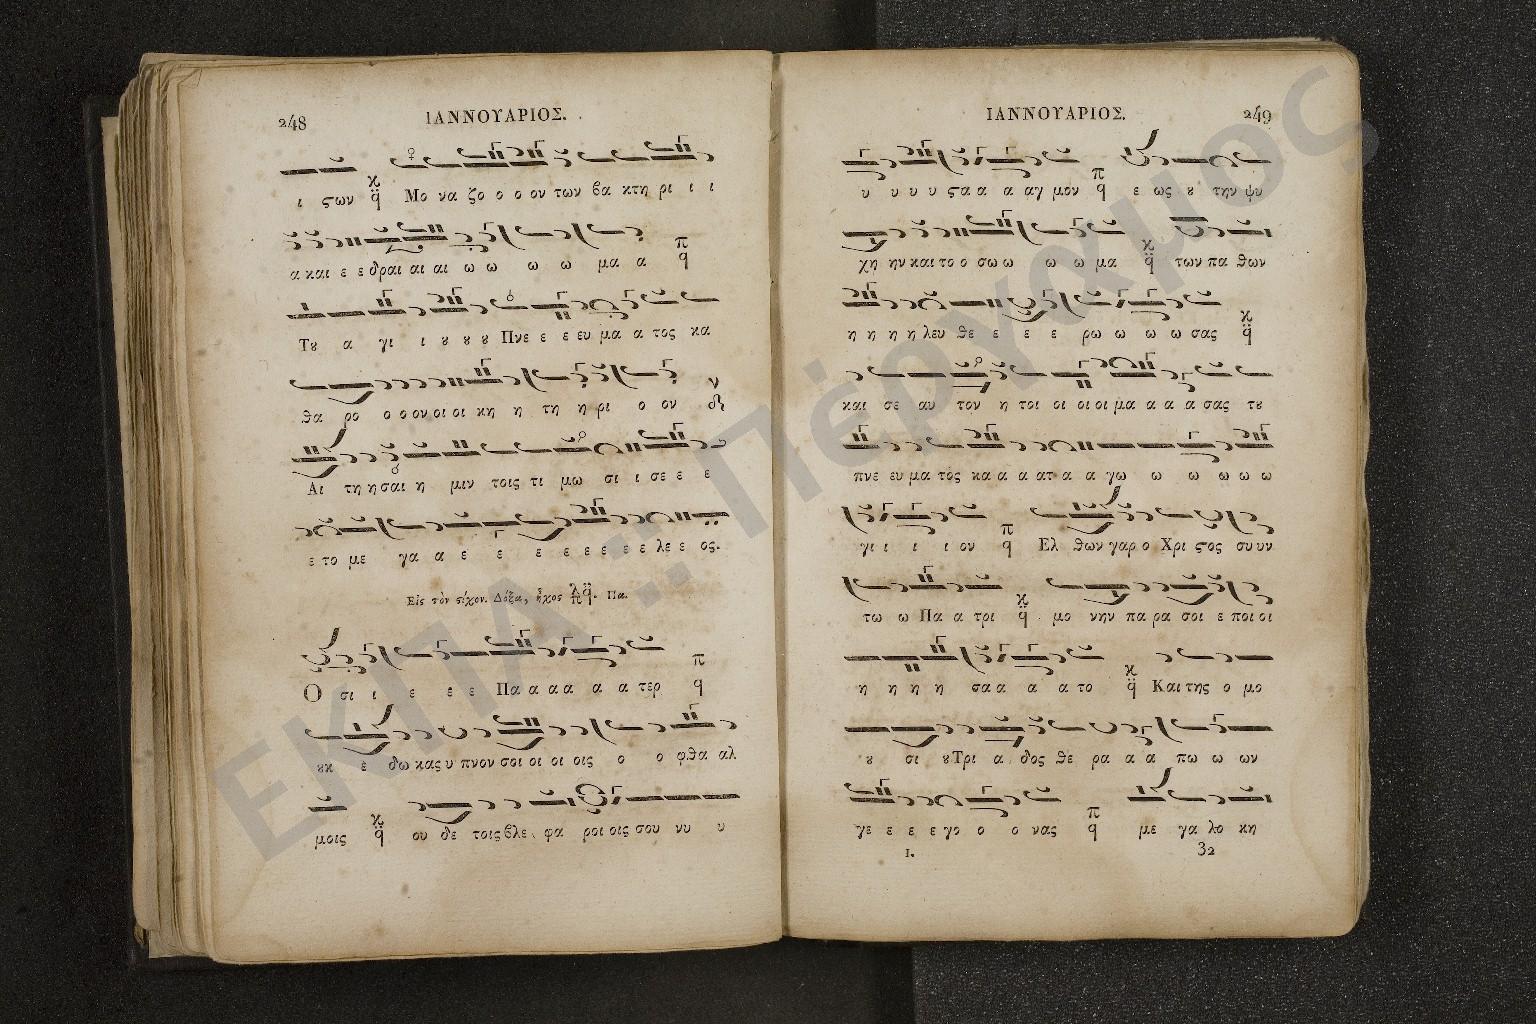 248 ΙΑΝΝΟΥΑΡΙΟΣ.
ι ϛων ϗ Μο να ζο ο ο ον των βα κτη ρι ι ι
α και ε ε δραι αι αι ω ω ω ω μα α π
Τȣ α γι ι ȣ ȣ ȣ Πνε ε ε ευ μα α τος κα
θα ρο ο ο ον οι οι κη η τη η ρι ο ον
Αι τη η σαι η μιν τοις τι μω σι ι σε ε ε
ε το με γα α ε ε ε ε ε ε ε ε λε ε ος.
Εἰς τὸν ϛίχον. Δόξα, ἦχος Πα.
Ο σι ι ε ε ε Πα α α α α α τερ π
ȣκ ε δω κας υ πνον σοι οι οι οι οις ο ο φθα αλ
μοις ϗ ου δε τοις βλε φα ροι οις σου νυ υ
ΙΑΝΝΟΥΑΡΙΟΣ. 249
υ υ υ υ ϛα α α αγ μον π ε ως ȣ την ψυ
χη ην και το ο σω ω ω ω μα ϗ των πα θων
η η η η λευ θε ε ε ε ρω ω ω ω σας ϗ
και σε αυ τον η τοι οι οι οι μα α α α σας τȣ
πνε ευ μα τος κα α α ατ α α γω ω ω ω ω ω
γι ι ι ι ον π Ελ θων γαρ ο Χρι ϛος συ υν
τω ω Πα α τρι ϗ μο νην πα ρα σοι ε ποι οι
η η η η σα α α α το ϗ Και της ο μο
ȣ σι ȣ Τρι α δος θε ρα α α πω ω ων
γε ε ε ε γο ο ο νας π με γα λο κη
Ι. 32
ΕΚΠΑ :: Πέργαμος